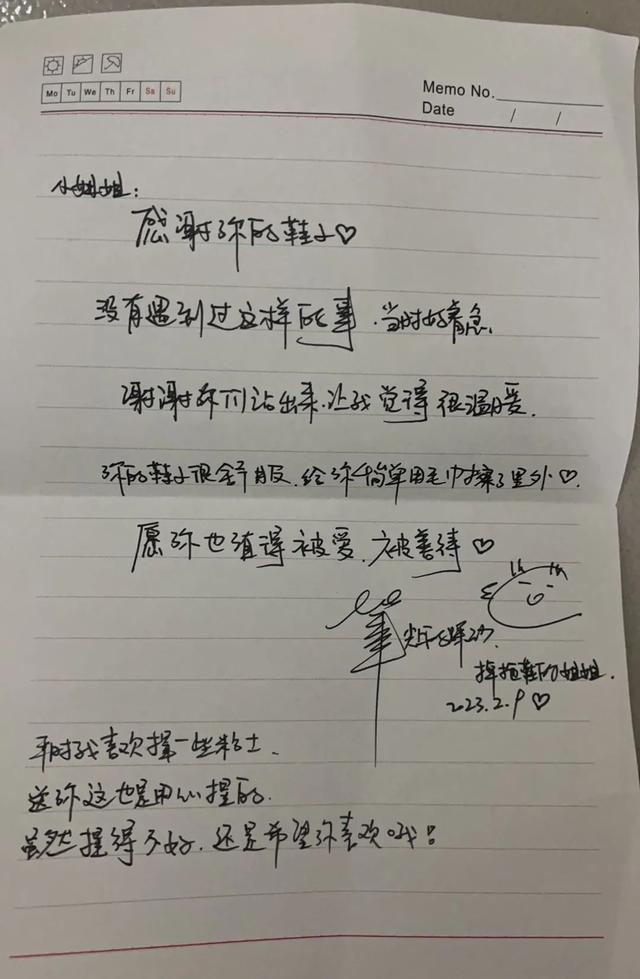 Mo Tu We Th Fr Sa Su
Memo No.
Date / /
小姐姐：
感谢你的鞋子♡
没有遇到过这样的事.当时好着急.
谢谢你可站出来.让我觉得很温暖.
你的鞋子很舒服.给你简单用毛巾擦了里外♡.
愿你也值得被爱.被善待♡
掉拖鞋的姐姐.
2023.2.9♡
平时我喜欢捏一些粘土.
送你这也是用心捏的.
虽然捏得不好.还是希望你喜欢哦!